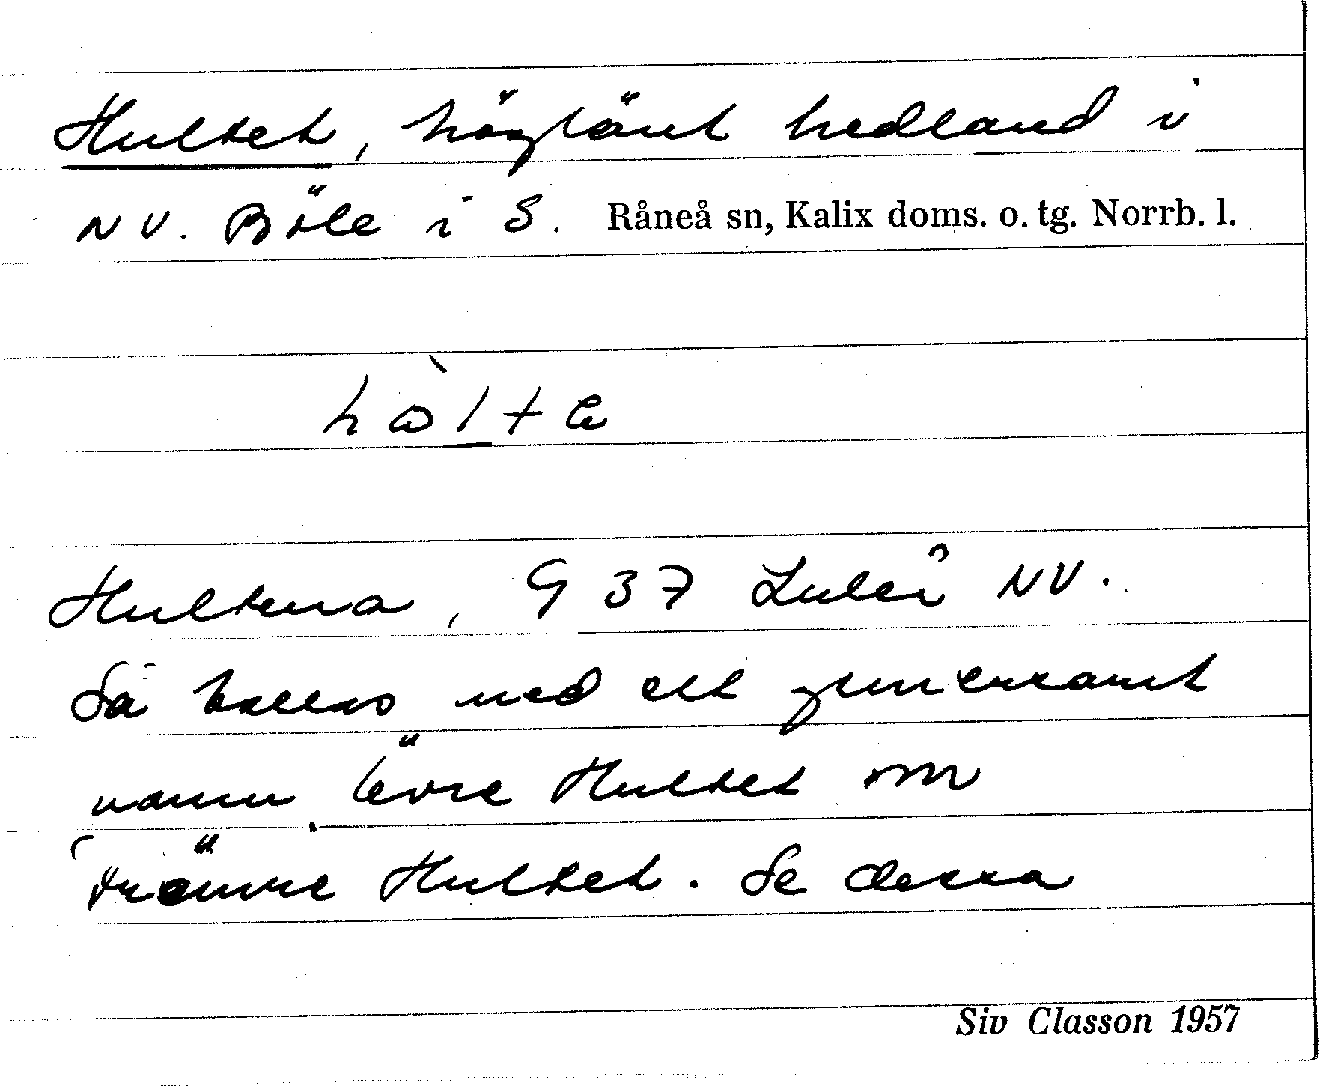 Hultet, högländ hedland i
NV. Böle i S. Råneå sn, Kalix doms. o. tg. Norrb. l.
Hultena, G 37 Luleå NV.
Så kallas med ett gemensamt
namn Övre Hultet och
Hultet. Se dessa
Siv Classon 1957